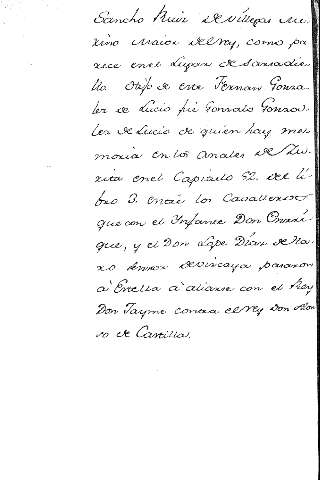 Sancho Ruiz de Villegas Me-
rino Maior del rey, como pa-
rece en el Lugar de
lla otijo de este Fernan Gonza-
lez de Lucio fue Gonzalo Gonza-
lez de Lucio de quien hay me-
moria en los anales de Zu-
rita en el Capitulo 52 del li-
bro 3. entre los Cavalleros
que con el Infante Don Enrri-
que, y el Don Lope Diaz de Ha-
ro Señor de Vizcaya pasaron
à Estella à aliarse con el Rey
Don Jayme contra el rey Don Alon-
so de Castilla.